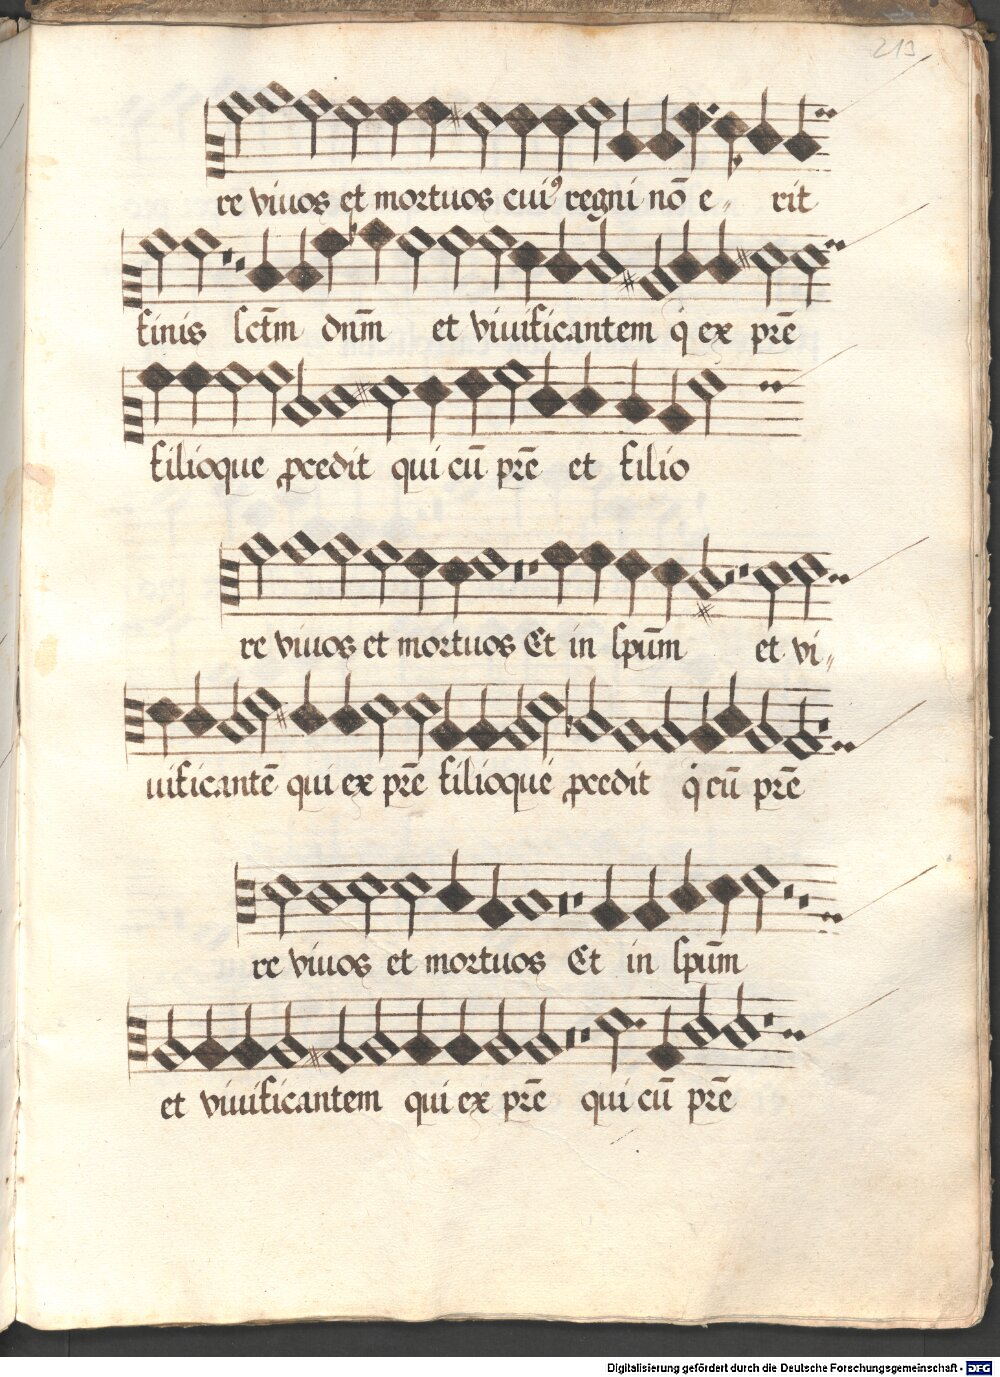 213
re viuos et mortuos cuiꝰ regni nō e〃 rit
finis sctm̄ dnm̄ et viuificantem q̇ ex prē
filioque ꝓcedit qui cū prē et filio
re viuos et mortuos Et in spūm et vi〃
uificantē qui ex prē filioque ꝓcedit q̇ cū prē
re viuos et mortuos Et in spūm
et viuificantem qui ex prē qui cū prē
Digitalisierung gefördert durch die Deutsche Forschungsgemeinschaft - DFG